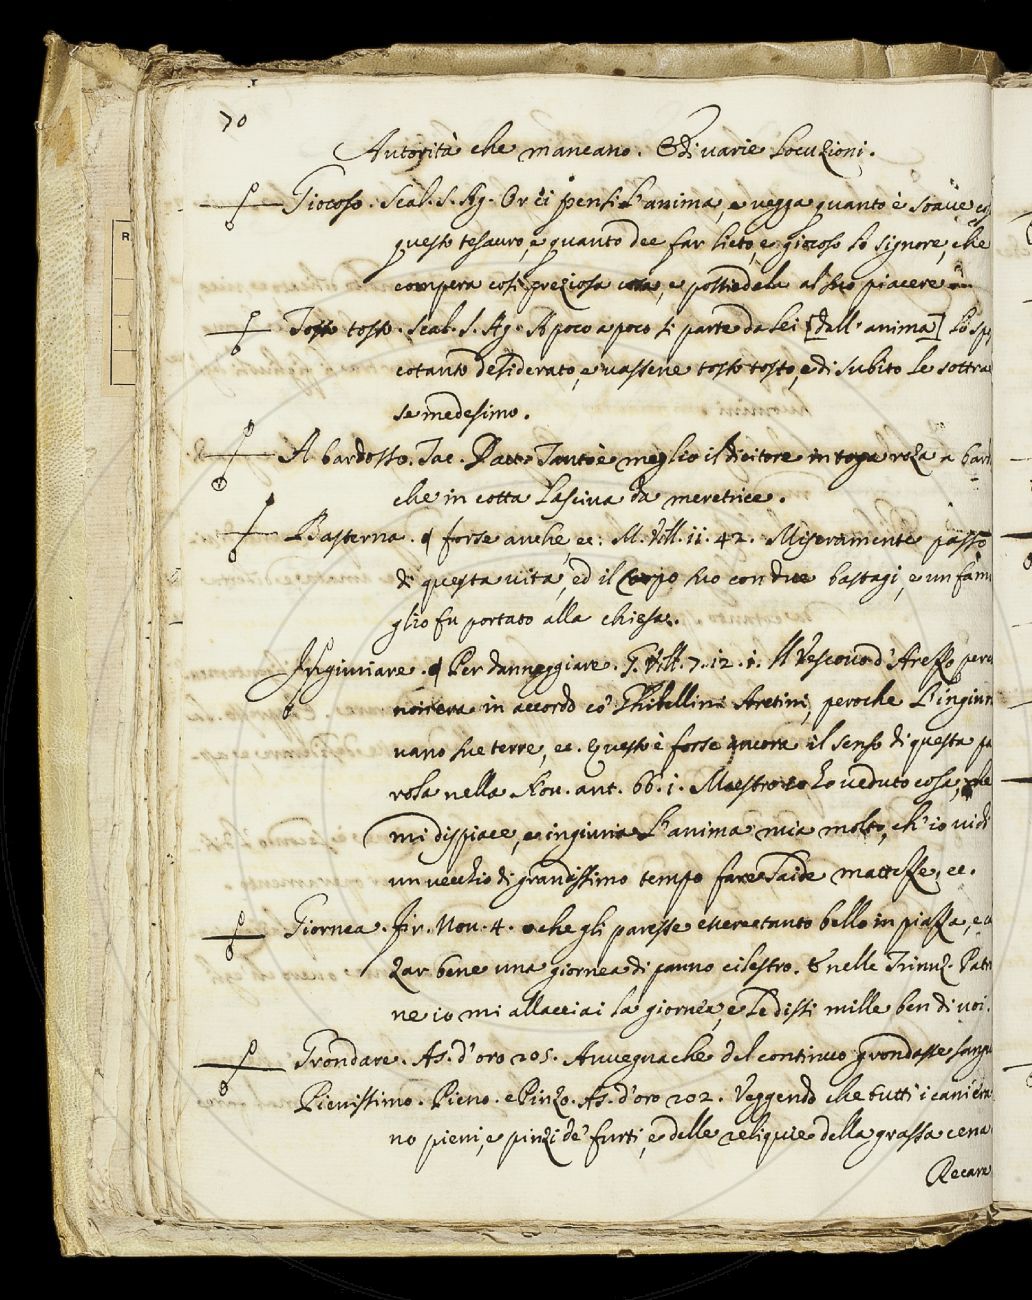 70
Autorità che mancano. E di varie Locuzioni.
Giocoso. Scal. S. Ag. Or ci pensi l'anima, e vegga quanto è soave
questo tesauro, e quanto dee far lieto, e giocoso lo signore, che
compera così preziosa cosa, e possiedela al suo piacere
Tosto tosto. Scal. S. Ag. A poco a poco si parte da lei [dall'anima] lo sp
cotanto desiderato, e vassene tosto tosto, e di subito le sottra
se medesimo.
A bardosso. Tac. Dav. Tanto è meglio il dicitore in toga roza a bard
che in cotta lasciva da meretrice.
Basterna. forse anche, ec: M. Vill. 11. 42. Miseramente passò
di questa vita, ed il corpo suo con due bastagi, e un fam
glio fu portato alla chiesa.
Ingiuriare. Per danneggiare. G. Vill. 7. 12. 1. Il Vescovo d'Arezzo però
non era in accordo co' Ghibellini Aretini, peroche l'ingiur
vano sue terre, ec. Questo è forse ancora il senso di questa pa
rola nella Nov. ant. 66. 1. Maestro io ho veduto cosa, che
mi dispiace, e ingiuria l'anima mia molto, ch'io vidi
un vecchio di grandissimo tempo fare laide mattezze, ec.
Giornea. Fir. Nov. 4. che gli paresse essere tanto bello in piazza, e a
zar bene una giornea di panno cilestro. E nelle Trinuz. Patr
ne io mi allacciai la giornea, e le dissi mille ben di voi.
Grondare. As. d'oro 205. Avvegnache del continuo grondasse sangu
Pienissimo. Pieno. e Pinzo. As. d'oro 202. Veggendo che tutti i cani era
no pieni, e pinzi de' furti, e delle reliquie della grassa cena
Recare
R